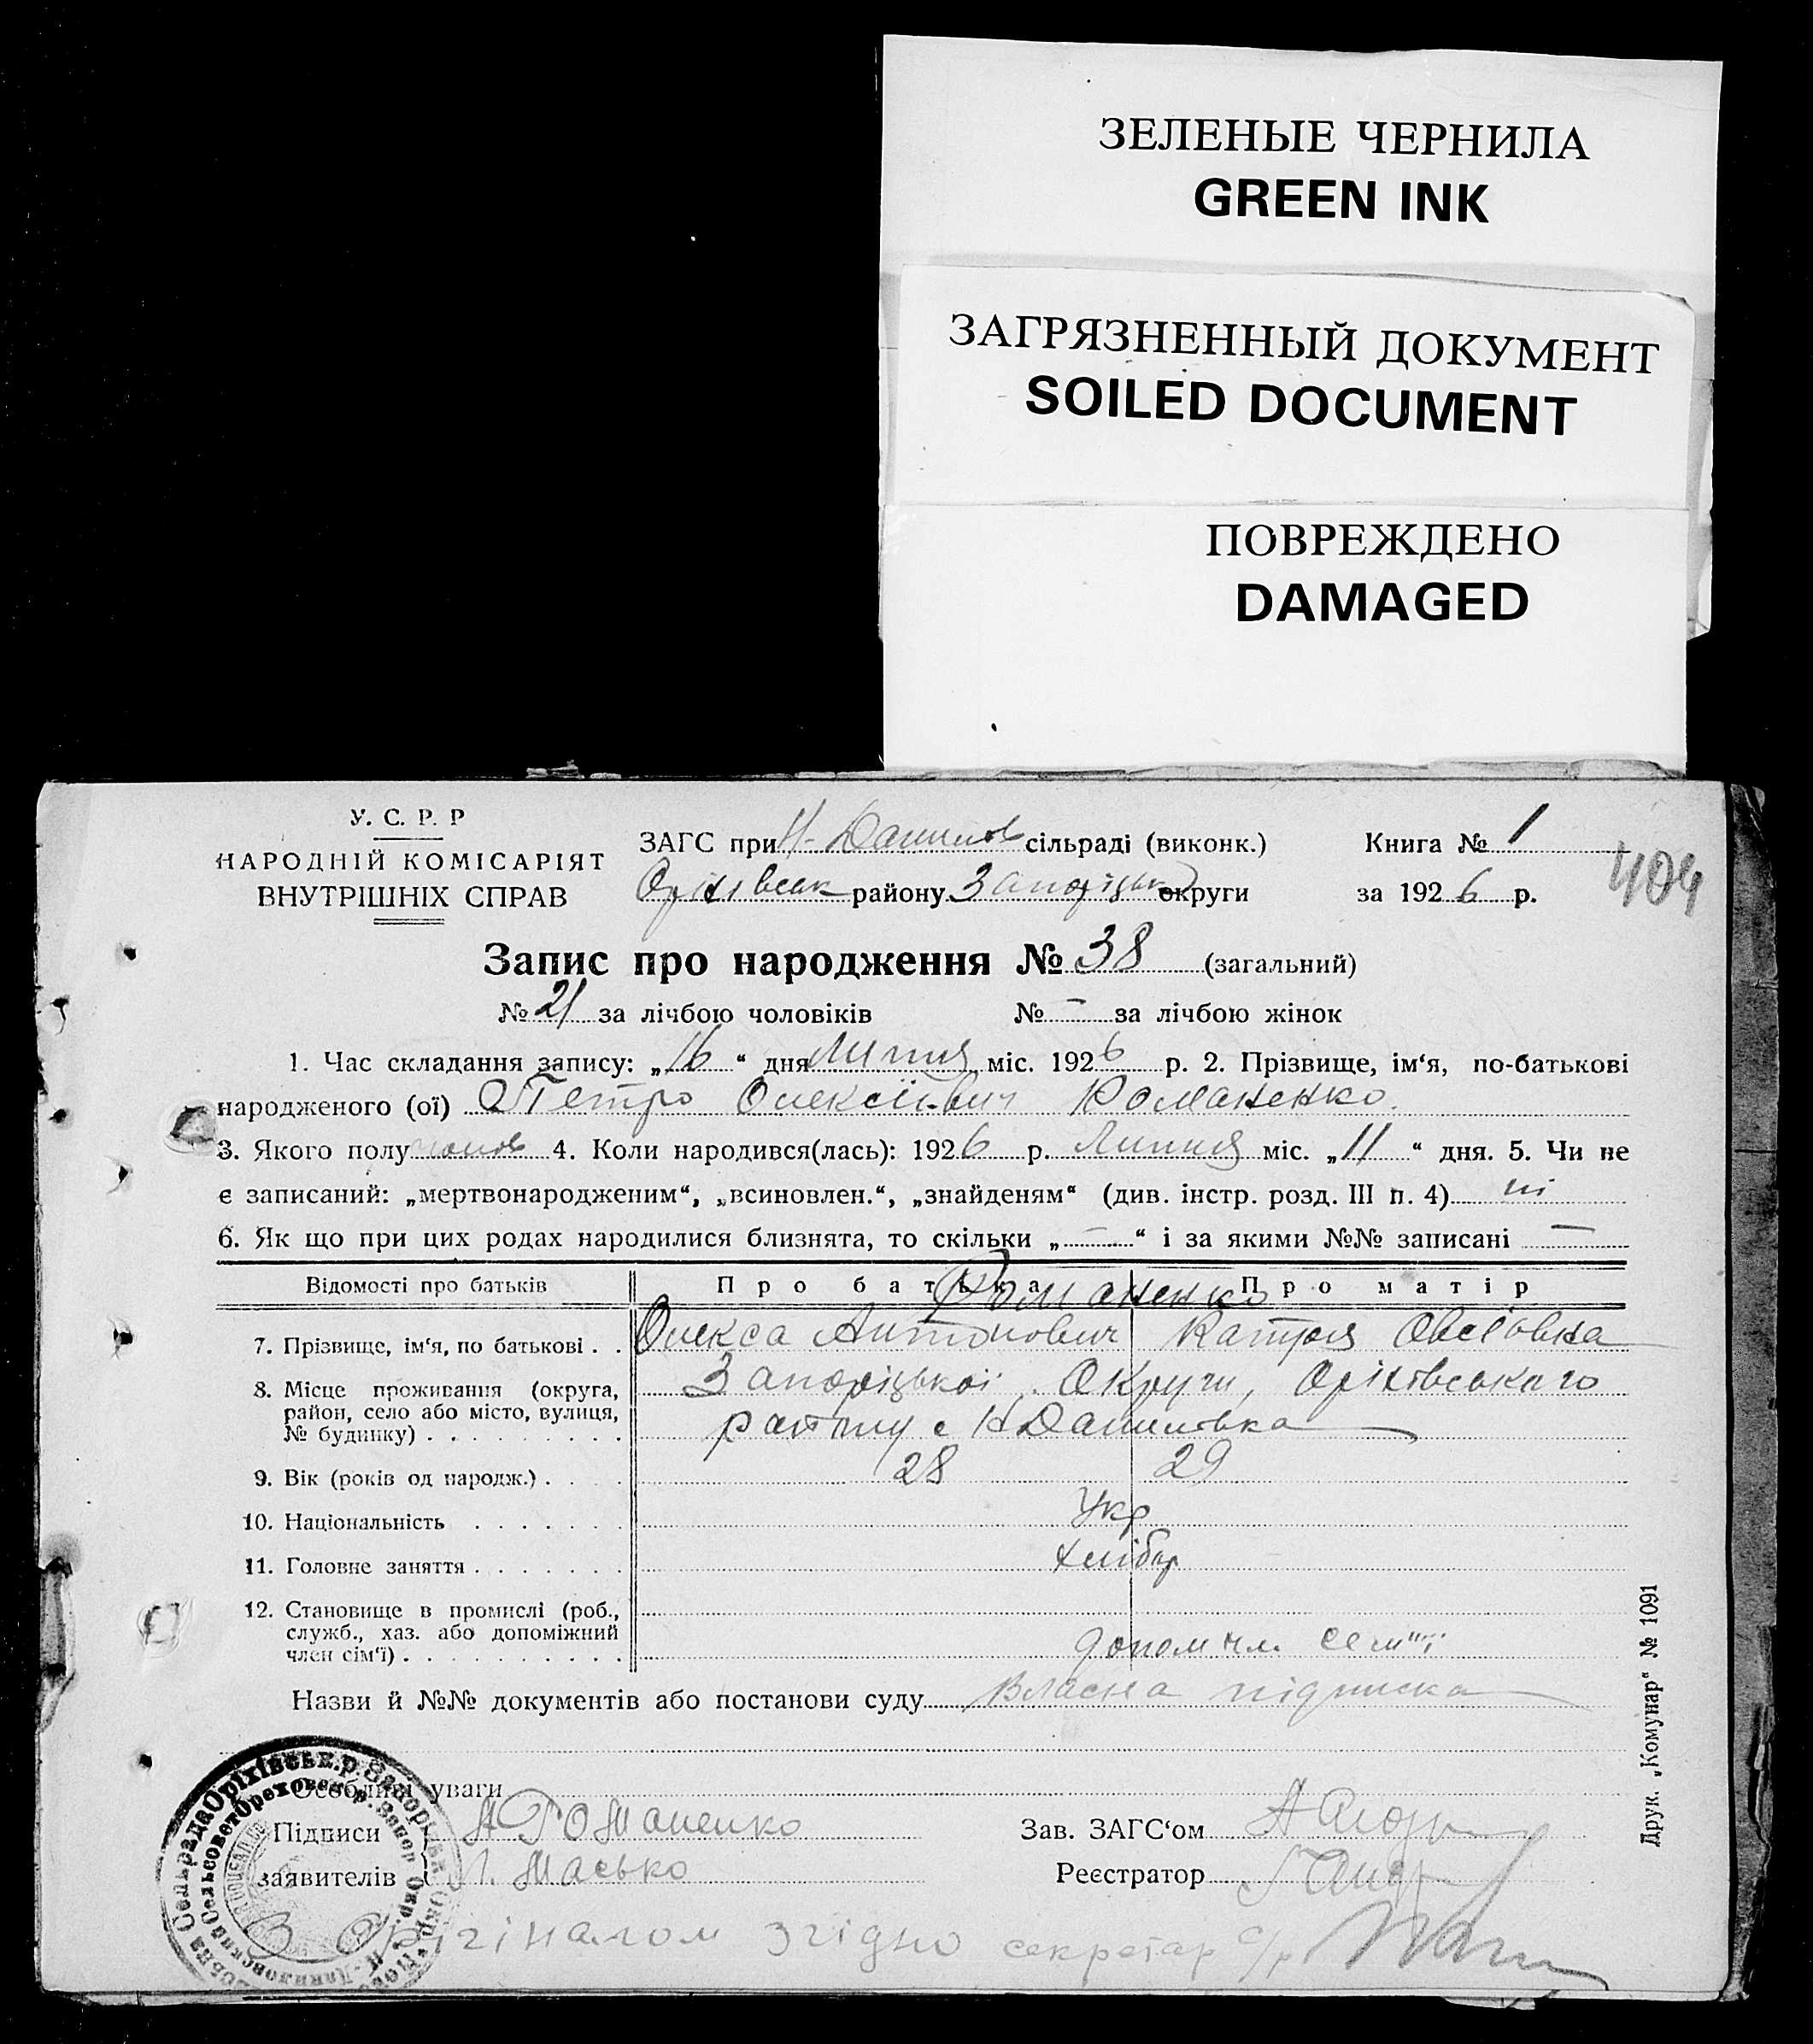 ЗЕЛЕНЫЕ ЧЕРНИЛА
GREEN INK
ЗАГРЯЗНЕННЫЙ ДОКУМЕНТ
SOILED DOCUMENT
ПОВРЕЖДЕНО
DAMAGED
У. С. Р. Р
НАРОДНІЙ КОМІСАРІЯТ
ВНУТРІШНІХ СПРАВ
ЗАГС при Н-Данилов сільраді (виконк.)
Оріхівськ району Запоріцьк округи
Книга № 1
за 1926 р.
404
Запис про народження № 38 (загальний)
№ 21 за лічбою чоловіків № — за лічбою жінок
1. Час складання запису: „16“ дня Липня міс. 1926 р. 2. Прізвище, ім'я, по-батькові
народженого (ої) Петро Олексійович Романенко
3. Якого полу чолов 4. Коли народився(лась): 1926 р. Липня міс. „11“ дня. 5. Чи не
є записаний: „мертвонародженим“, „всиновлен.“, „знайденям“ (див. інстр. розд. III п. 4) ні
6. Як що при цих родах народилися близнята, то скільки „—“ і за якими №№ записані —
Відомості про батьків Про батька Про матір
Романенко
7. Прізвище, ім'я, по батькові . . Олекса Антонович Катря Овсіївна
8. Місце проживання (округа, район, село або місто, вулиця, № будинку) . . . . . . . . . Запоріцької Округи, Оріхівського
району с Н Данилівка
9. Вік (років од народж.) . . . . 28 29
10. Національність . . . . . . . Укр
11. Головне заняття . . . . . . . хлібор
12. Становище в промислі (роб., служб., хаз. або допоміжний член сім'ї) . . . . . . . . . . допом чл. семії
Назви й №№ документів або постанови суду Власна підписка
Особливі уваги
Підписи заявителів { А Романенко
Масько
Зав. ЗАГС'ом
Реєстратор
З Орігіналом згідно секретар с/р
Друк. „Комунар“ № 1091